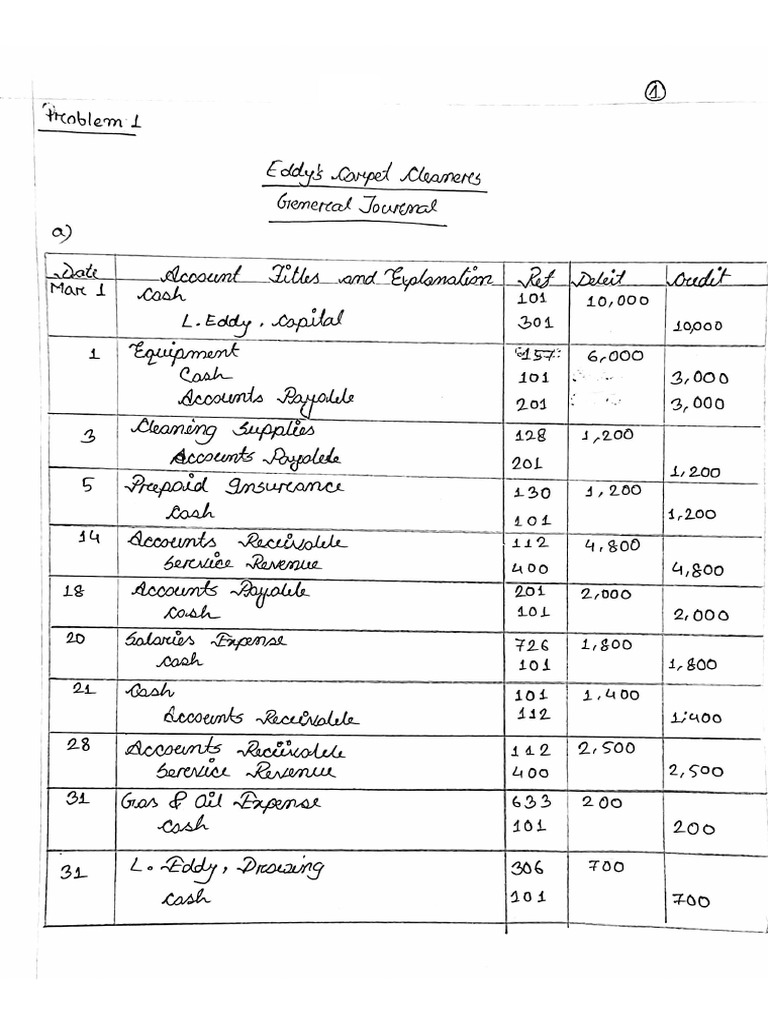 ①
Problem 1
Eddy's Carpet Cleaners
General Journal
a)
Date Account Titles and Explanation Ref Debit Credit
Mar 1 Cash 101 10,000
L. Eddy, Capital 301 10,000
1 Equipment 157 6,000
Cash 101 3,000
Accounts Payable 201 3,000
3 Cleaning Supplies 128 1,200
Accounts Payable 201 1,200
5 Prepaid Insurance 130 1,200
Cash 101 1,200
14 Accounts Receivable 112 4,800
Service Revenue 400 4,800
18 Accounts Payable 201 2,000
Cash 101 2,000
20 Salaries Expense 726 1,800
Cash 101 1,800
21 Cash 101 1,400
Accounts Receivable 112 1,400
28 Accounts Receivable 112 2,500
Service Revenue 400 2,500
31 Gas & Oil Expense 633 200
Cash 101 200
31 L. Eddy, Drawing 306 700
Cash 101 700